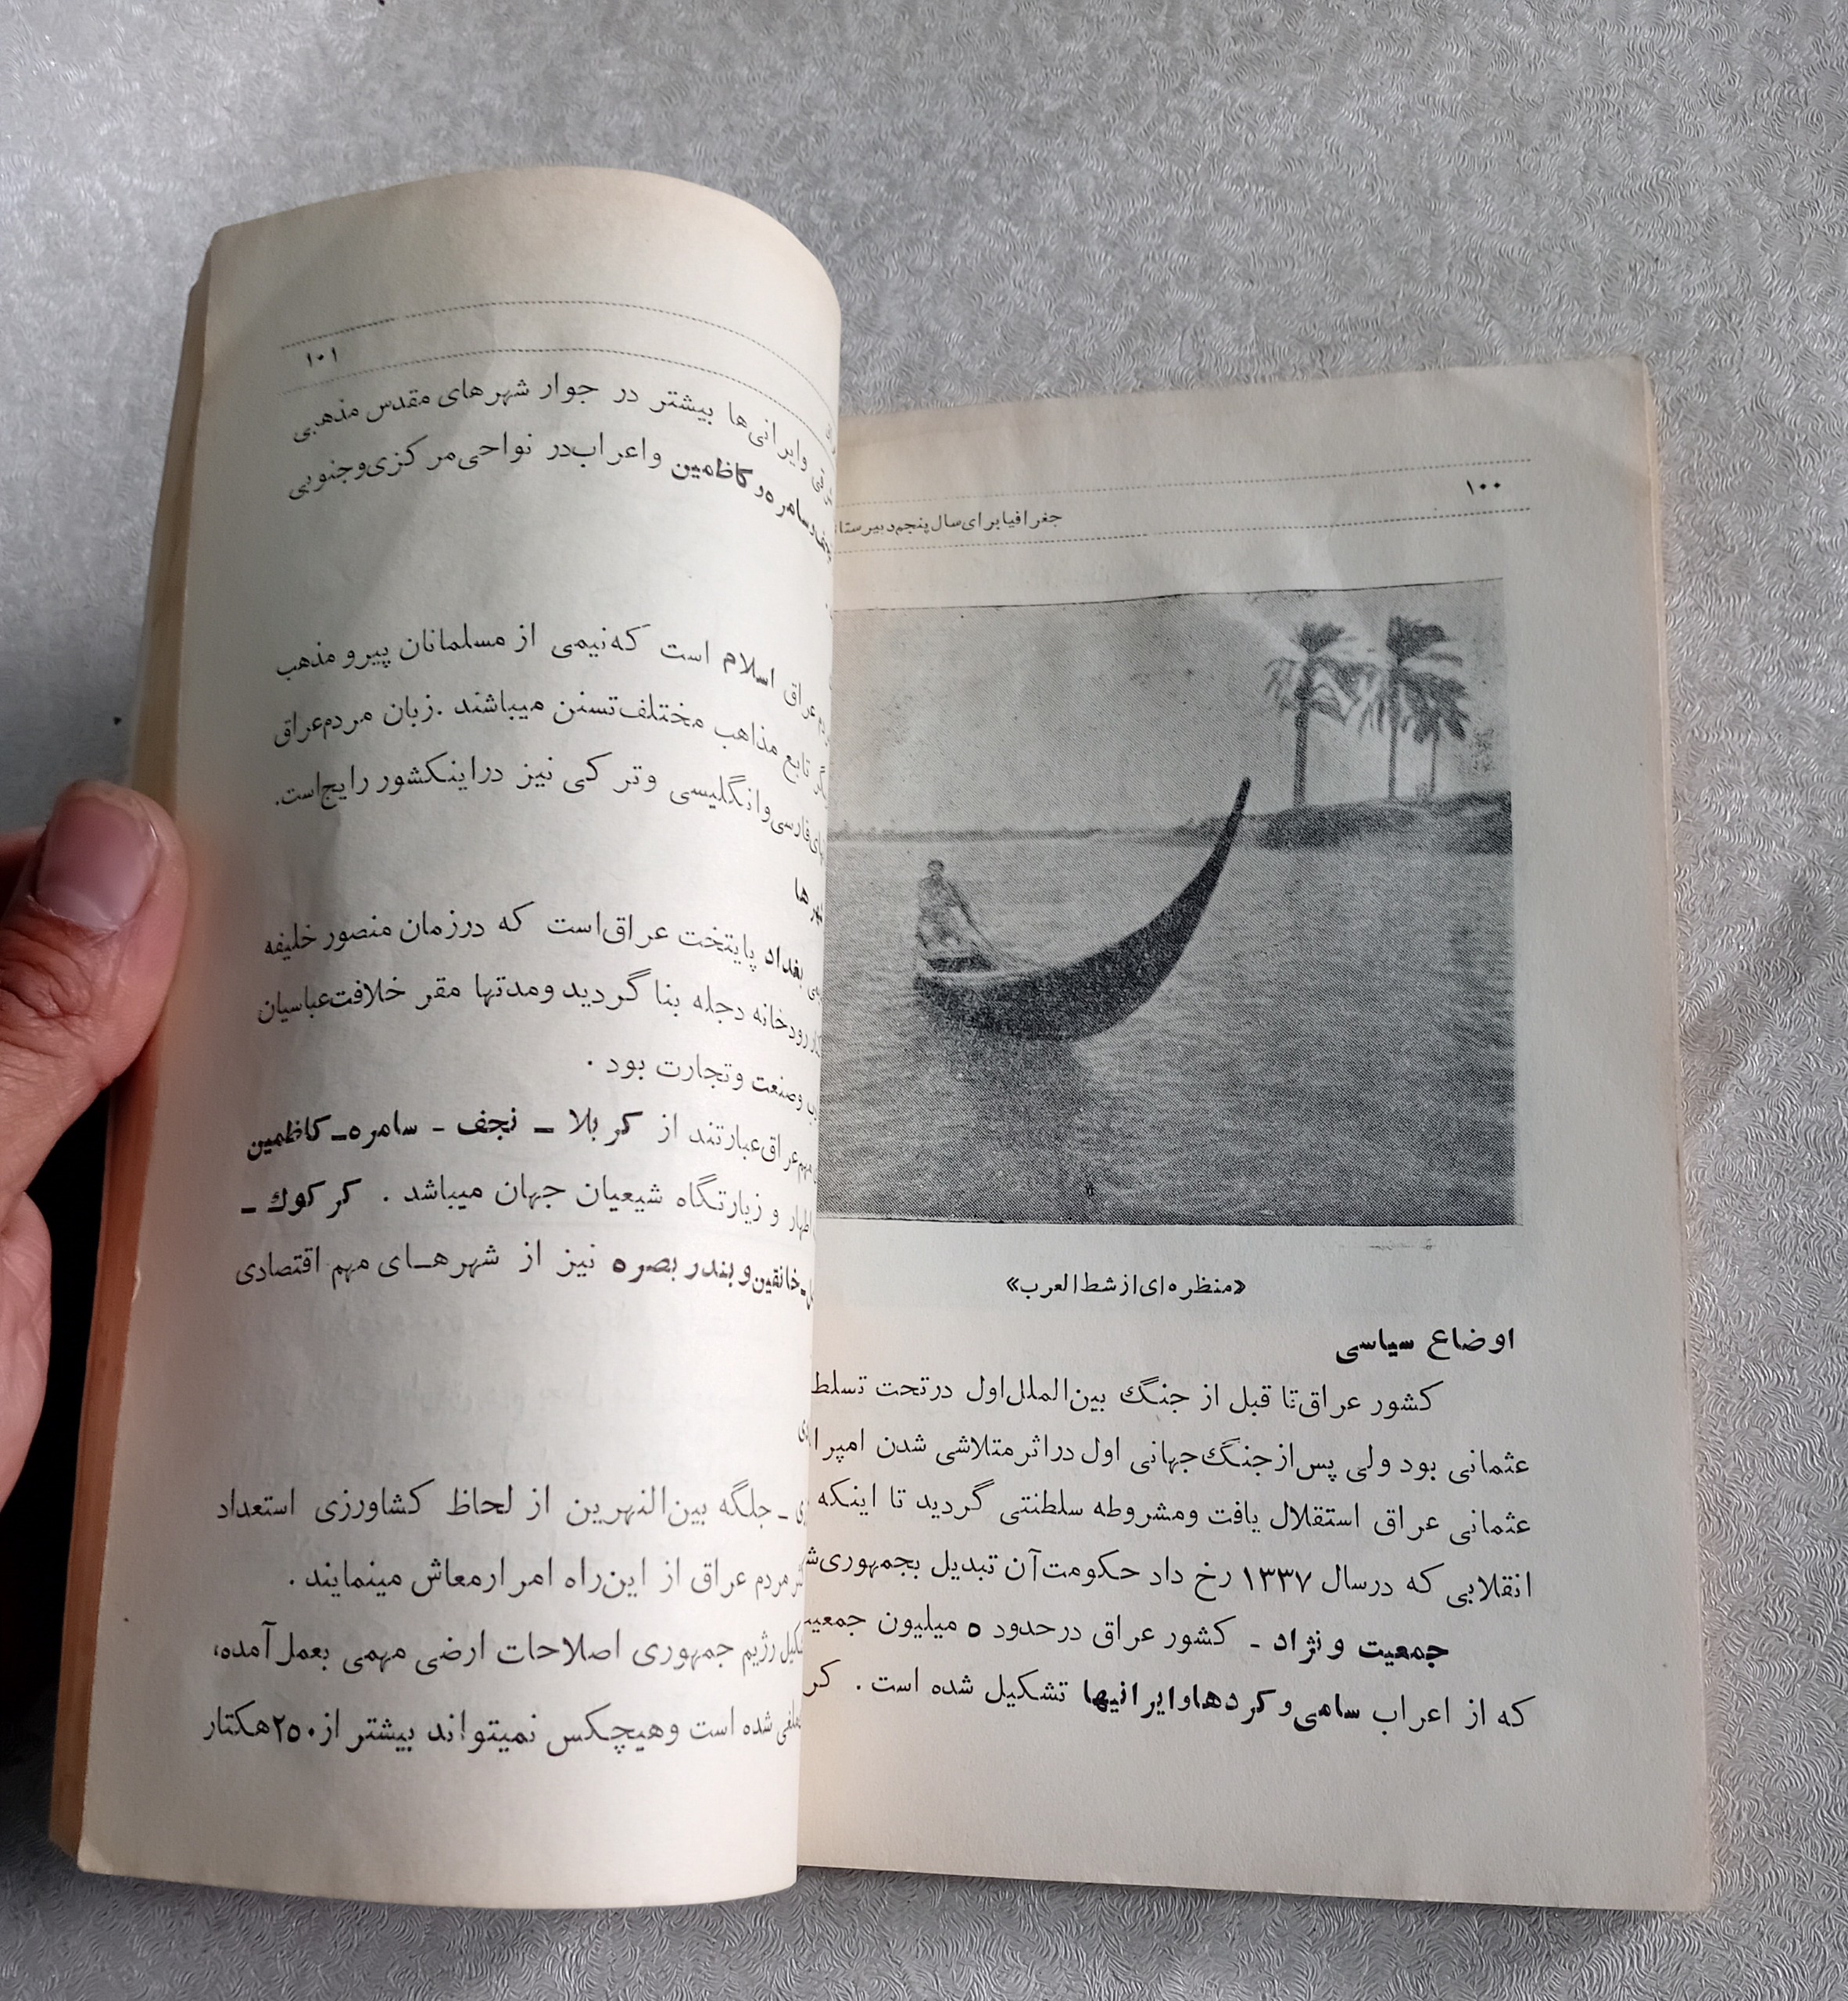 ۱۰۰
جغرافیا برای سال پنجم
«منظره‌ای از شط العرب»
اوضاع سیاسی
کشور عراق تا قبل از جنگ بین‌الملل اول در تحت تسلط
عثمانی بود ولی پس از جنگ جهانی اول در اثر متلاشی شدن
عثمانی عراق استقلال یافت ومشروطه سلطنتی گردید تا اینکه
انقلابی که در سال ۱۳۳۷ رخ داد حکومت آن تبدیل بجمهوری
جمعیت و نژاد - کشور عراق در حدود ۵ میلیون
که از اعراب سامی و کردها و ایرانیها تشکیل شده است .
۱۰۱
وایرانی‌ها بیشتر در جوار شهرهای مقدس مذهبی
وسامره و کاظمین واعراب در نواحی مرکزی وجنوبی
عراق اسلام است که نیمی از مسلمانان پیرو مذهب
تابع مذاهب مختلف تسنن میباشند . زبان مردم عراق
فارسی وانگلیسی وترکی نیز در اینکشور رایج است.
بغداد پایتخت عراق است که در زمان منصور خلیفه
رودخانه دجله بنا گردید ومدتها مقر خلافت عباسیان
وصنعت وتجارت بود .
عراق عبارتند از کربلا - نجف - سامره - کاظمین
و زیارتگاه شیعیان جهان میباشد . کرکوك -
خانقین و بندر بصره نیز از شهرهای مهم اقتصادی
- جلگه بین‌النهرین از لحاظ کشاورزی استعداد
مردم عراق از این راه امرار معاش مینمایند .
رژیم جمهوری اصلاحات ارضی مهمی بعمل آمده،
شده است وهیچکس نمیتواند بیشتر از ۲۵۰ هکتار